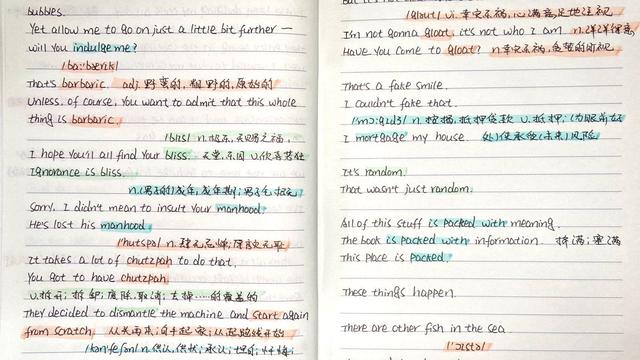 bubbles.
Yet allow me to go on just a little bit further —
will you indulge me?
/bɑːˈbærɪk/
That's barbaric. adj. 野蛮的, 粗野的, 原始的
Unless, of course, you want to admit that this whole
thing is barbaric.
/blɪs/ n. 极乐, 天赐之福,
I hope you'll all find your bliss. 天堂, 乐园 v.
Ignorance is bliss.
n. (男子的)成年, 成年期; 男子气概
Sorry. I didn't mean to insult your manhood.
He's lost his manhood.
/ˈhʊtspə/ n. 肆无忌惮, 厚颜无耻
It takes a lot of chutzpah to do that.
You got to have chutzpah.
v. 拆开; 拆卸; 废除, 取消; 去掉……的覆盖的
They decided to dismantle the machine and start again
from scratch. 从头再来; 白手起家; 从起跑线开始
n. 供认, 供状; 承认; 坦白; 忏悔
/gloʊt/ vi. 幸灾乐祸, 心满意足地注视
I'm not gonna gloat, it's not who I am. n. 洋洋得意,
Have you come to gloat? n. 幸灾乐祸, 贪婪的盯视
That's a fake smile.
I couldn't fake that.
/ˈmɔːɡɪdʒ/ n. 按揭, 抵押贷款 v. 抵押;
I mortgage my house. 处)使承受(未来)风险
It's random.
That wasn't just random.
All of this stuff is packed with meaning.
The book is packed with information. 挤满; 塞满
This place is packed.
These things happen.
There are other fish in the sea.